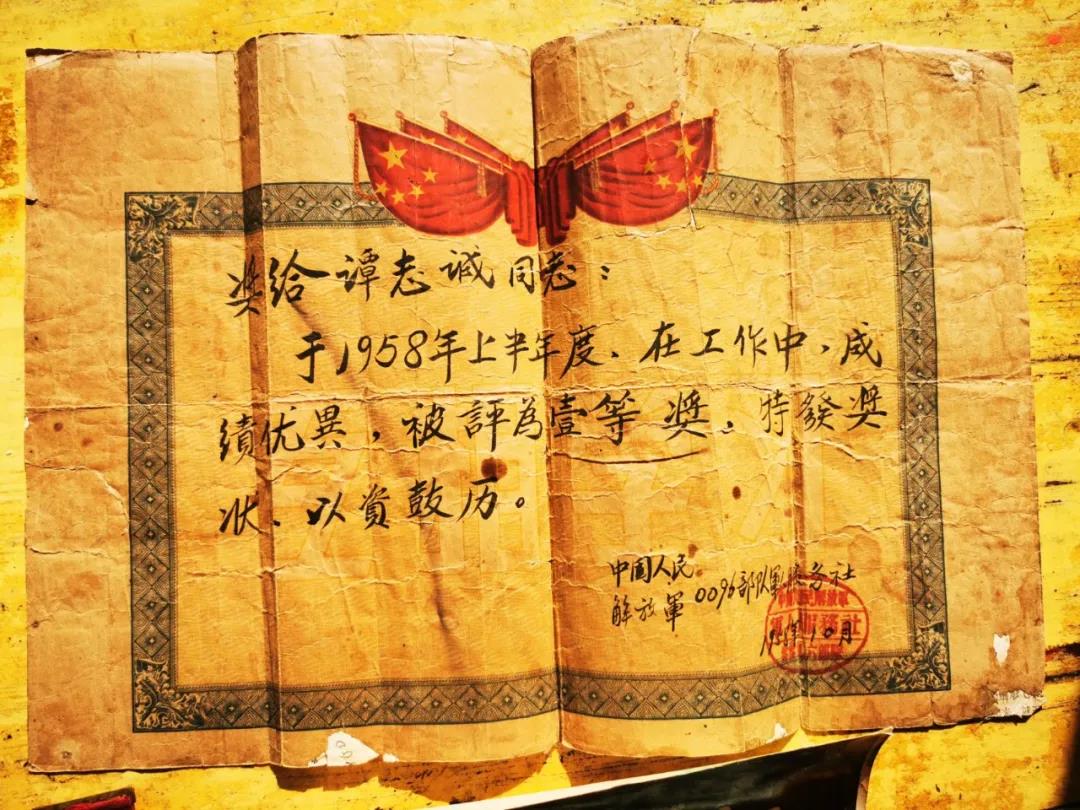 奖给谭志诚同志：
于1958年上半年度、在工作中，成
績优異，被評為壹等奖，特發奖
状、以資鼓历。
中國人民
解放軍
0096部队軍人服务社
1958年10月
服務社